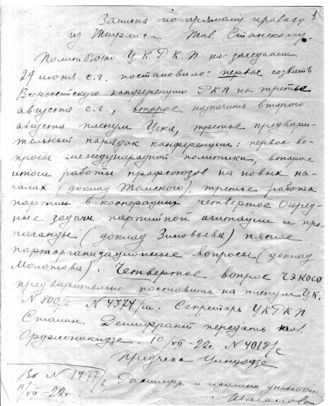 Записка по прямому проводу
из Тифлиса Тов
Политбюро ЦКРКП на заседании
29 июня с.г. постановило: первое созвать
Всероссийскую конференцию РКП на третье
августа с.г., второе назначить второго
августа пленум Цека, третье предвари-
тельный порядок конференции: первое во-
просы международной политики, второе
итоги работы профсоюзов на новых на-
чалах (доклад Томского) третье работа
партии в кооперации четвертое Очеред-
ные задачи партийной агитации и про-
паганды (доклад Зиновьева) пятое
парторганизационные вопросы (доклад
Молотова). Четвертое вопрос
предварительно поставить на пленум ЦК.
Секретарь ЦКРКП
Сталин. Дешифрант передать тов.
Орджоникидзе. 10/VII-22г. № 4019/с
Вх № 1977/с
11/VII-22г.